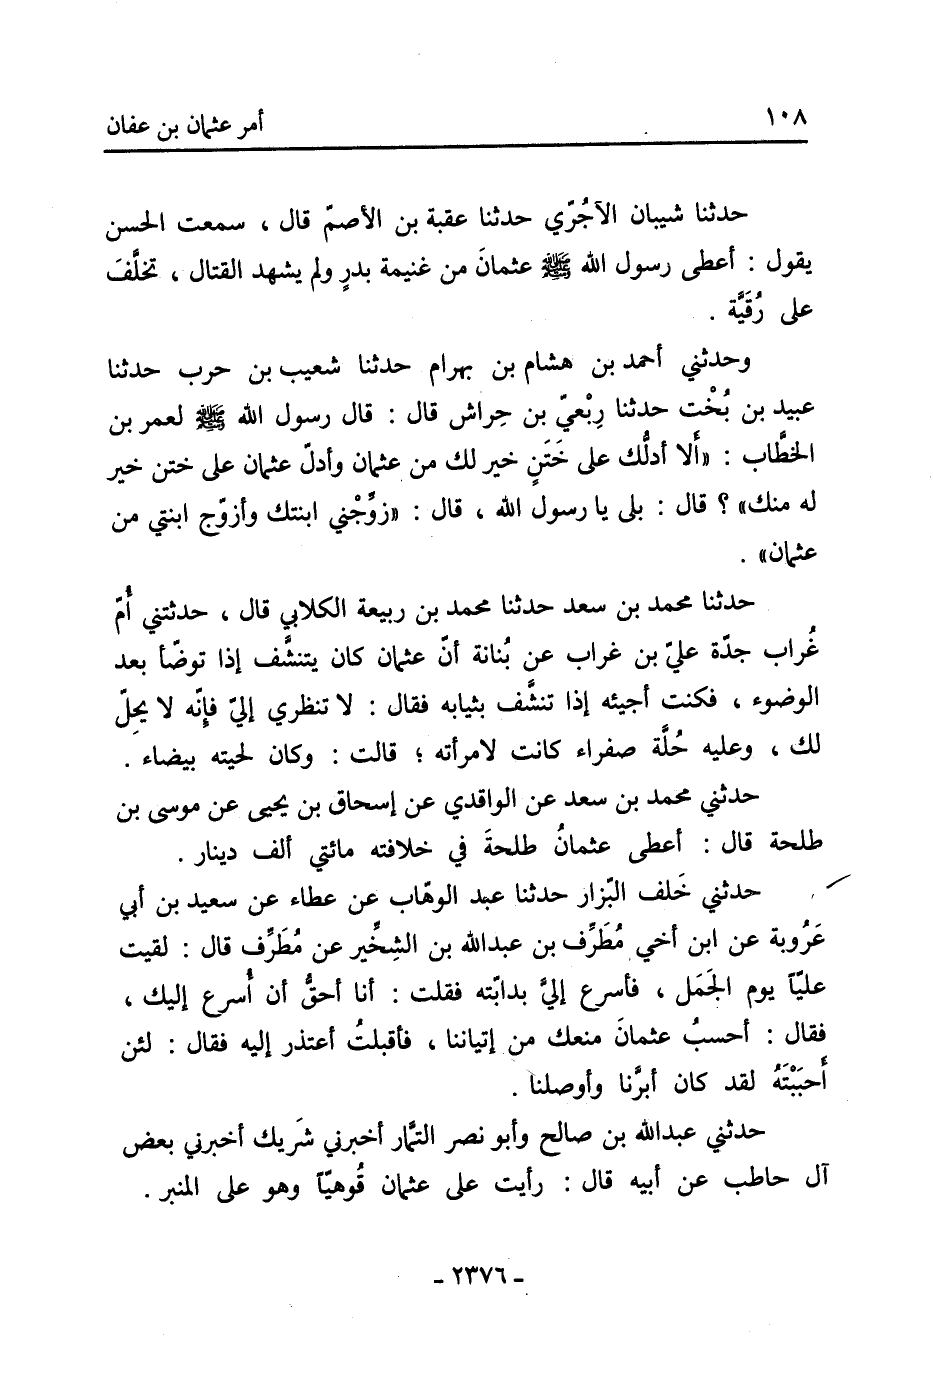 ١٠٨
أمر عثمان بن عفان
حدثنا شيبان الآجُرّي حدثنا عقبة بن الأصمّ قال ، سمعت الحسن
يقول : أعطى رسول الله ﷺ عثمانَ من غنيمة بدرٍ ولم يشهد القتال ، تخلَّفَ
على رُقَيَّة .
وحدثني أحمد بن هشام بن بهرام حدثنا شعيب بن حرب حدثنا
عبيد بن بُخْت حدثنا رِبْعيّ بن حِراش قال : قال رسول الله ﷺ لعمر بن
الخطَّاب : «أَلا أدلُّك على خَتَنٍ خير لك من عثمان وأدلّ عثمان على ختن خير
له منك» ؟ قال : بلى يا رسول الله ، قال : «زوِّجْني ابنتك وأزوّج ابنتي من
عثمان» .
حدثنا محمد بن سعد حدثنا محمد بن ربيعة الكلابي قال ، حدثتني أُمّ
غُراب جدّة عليّ بن غراب عن بُنانة أنّ عثمان كان يتنشَّف إذا توضّأ بعد
الوضوء ، فكنت أجيئه إذا تنشَّف بثيابه فقال : لا تنظري إليّ فإنّه لا يحِلّ
لك ، وعليه حُلَّة صفراء كانت لامرأته ؛ قالت : وكان لحيته بيضاء .
حدثني محمد بن سعد عن الواقدي عن إسحاق بن يحيى عن موسى بن
طلحة قال : أعطى عثمانُ طلحةَ في خلافته مائتي ألف دينار .
حدثني خَلف البّزار حدثنا عبد الوهّاب عن عطاء عن سعيد بن أبي
عَرُوبة عن ابن أخي مُطَرِّف بن عبدالله بن الشِخِّير عن مُطَرِّف قال : لقيت
عليّاً يوم الجَمَل ، فأسرع إليَّ بدابّته فقلت : أنا أحقُّ أن أُسرع إليك ،
فقال : أحسبُ عثمانَ منعك من إتياننا ، فأقبلتُ أعتذر إليه فقال : لئن
أَحبَبْتَهُ لقد كان أبرَّنا وأوصلنا .
حدثني عبدالله بن صالح وأبو نصر التمّار أخبرني شَريك أخبرني بعض
آل حاطب عن أبيه قال : رأيت على عثمان قُوهيّاً وهو على المنبر .
- ٢٣٧٦ -